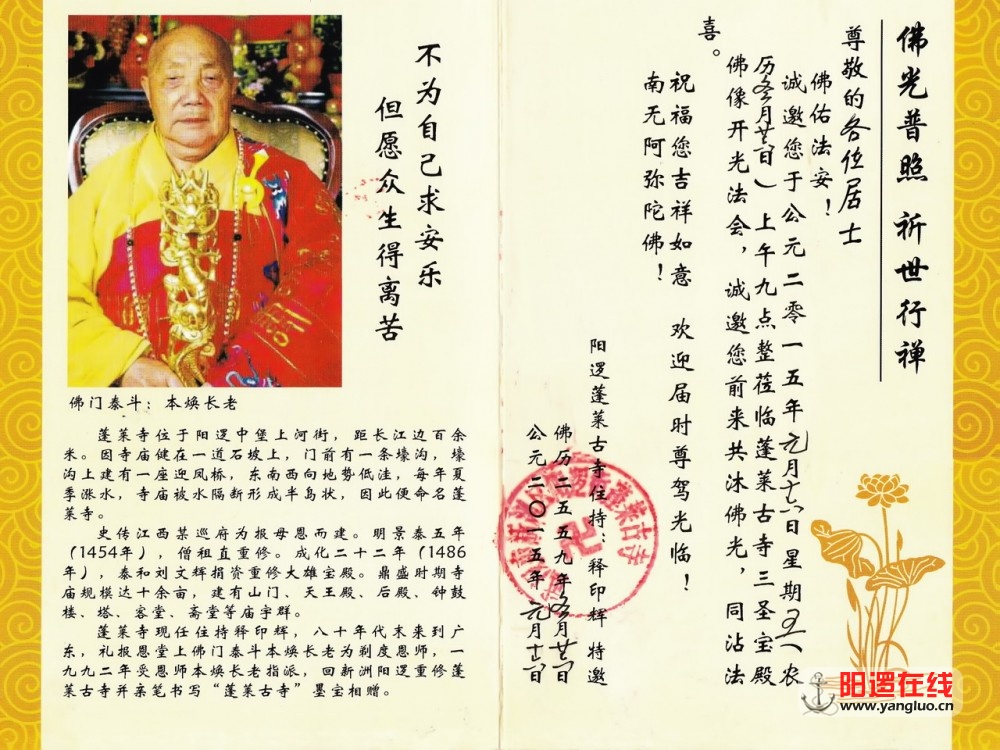 佛光普照 祈世行禅
尊敬的各位居士
佛佑法安！
诚邀您于公元二零一五年元月十六日星期五（农
历冬月廿六日）上午九点整莅临蓬莱古寺三圣宝殿
佛像开光法会，诚邀您前来共沐佛光，同沾法
喜。
祝福您吉祥如意 欢迎届时尊驾光临！
南无阿弥陀佛！
阳逻蓬莱古寺住持：释印辉 特邀
佛历二五五九年冬月廿六日
公元二〇一五年元月十六日
卍
不为自己求安乐
但愿众生得离苦
佛门泰斗：本焕长老
蓬莱寺位于阳逻中堡上河街，距长江边百余
米。因寺庙健在一道石坡上，门前有一条壕沟，壕
沟上建有一座迎凤桥，东南西向地势低洼，每年夏
季涨水，寺庙被水隔断形成半岛状，因此便命名蓬
莱寺。
史传江西某巡府为报母恩而建。明景泰五年
（1454年），僧租直重修。成化二十二年（1486
年），泰和刘文辉捐资重修大雄宝殿。鼎盛时期寺
庙规模达十余亩，建有山门、天王殿、后殿、钟鼓
楼、塔、客堂、斋堂等庙宇群。
蓬莱寺现任住持释印辉，八十年代末来到广
东，礼报恩堂上佛门泰斗本焕长老为剃度恩师，一
九九二年受恩师本焕长老指派，回新洲阳逻重修蓬
莱古寺并亲笔书写“蓬莱古寺”墨宝相赠。
阳逻在线
www.yangluo.cn